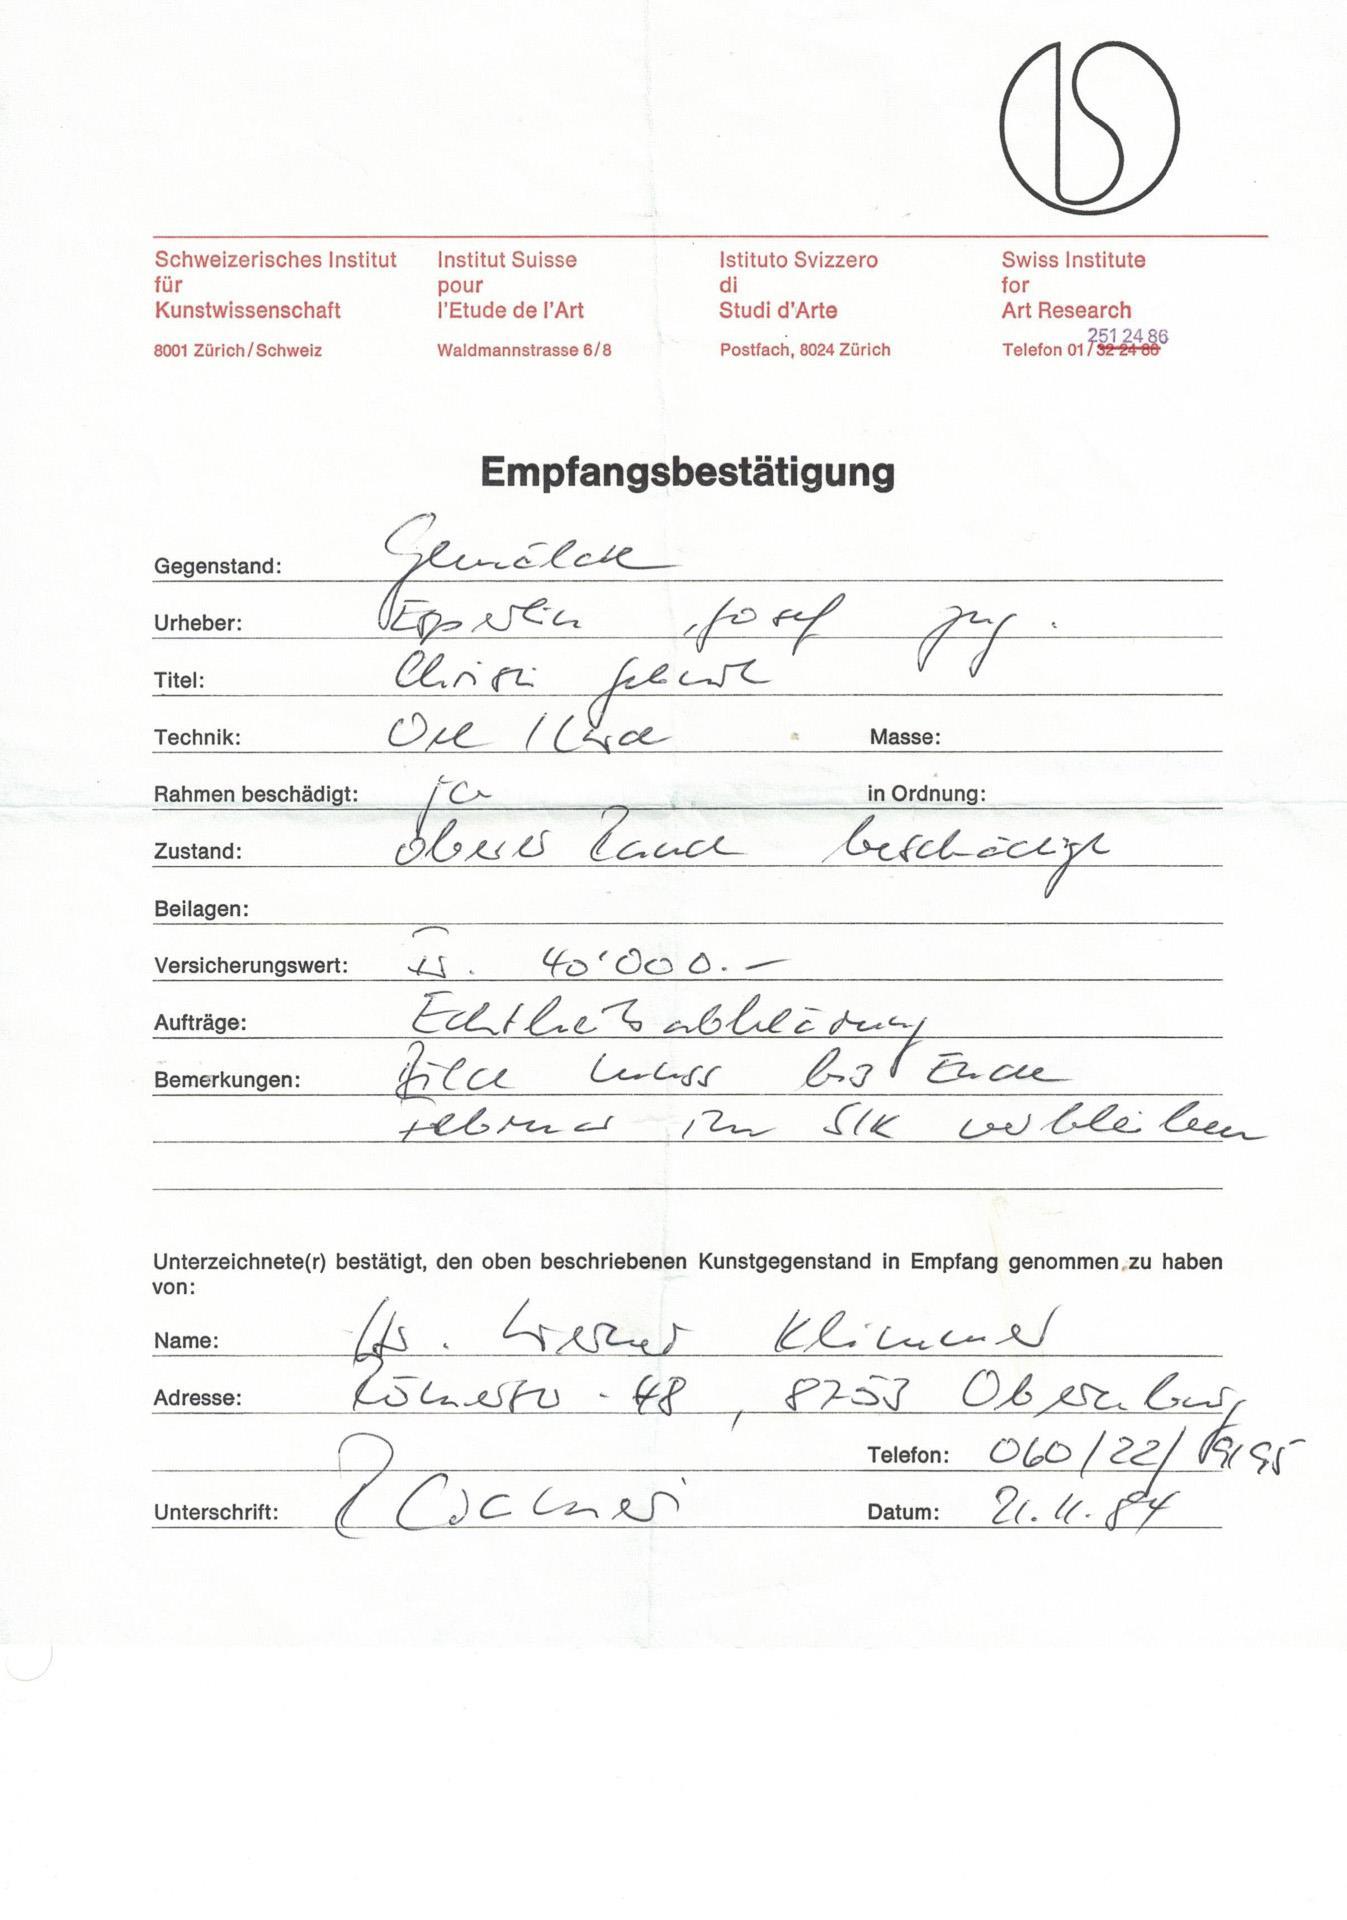 Schweizerisches Institut
für
Kunstwissenschaft
8001 Zürich/Schweiz
Institut Suisse
pour
l'Etude de l'Art
Waldmannstrasse 6/8
Istituto Svizzero
di
Studi d'Arte
Postfach, 8024 Zürich
Swiss Institute
for
Art Research
251 24 86
Telefon 01/32 24 86
Empfangsbestätigung
Gegenstand: Gemälde
Urheber: Josef
Titel: Christi Geburt
Technik: Oel / Masse:
Rahmen beschädigt: ja in Ordnung:
Zustand: oberer Rand beschädigt
Beilagen:
Versicherungswert: 40'000.–
Aufträge: Echtheitsabklärung
Bemerkungen: Bild muss bis Ende
Februar im SIK verbleiben
Unterzeichnete(r) bestätigt, den oben beschriebenen Kunstgegenstand in Empfang genommen zu haben
von:
Name: Hr. Werner Klimmer
Adresse: Römerstr. 48, 8753 Obernburg
Telefon: 060/22/
Unterschrift: Datum: 21.11.84